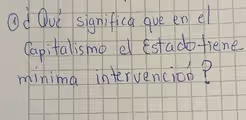 ① ¿ Qué significa que en el
Capitalismo el Estado tiene
mínima intervención?